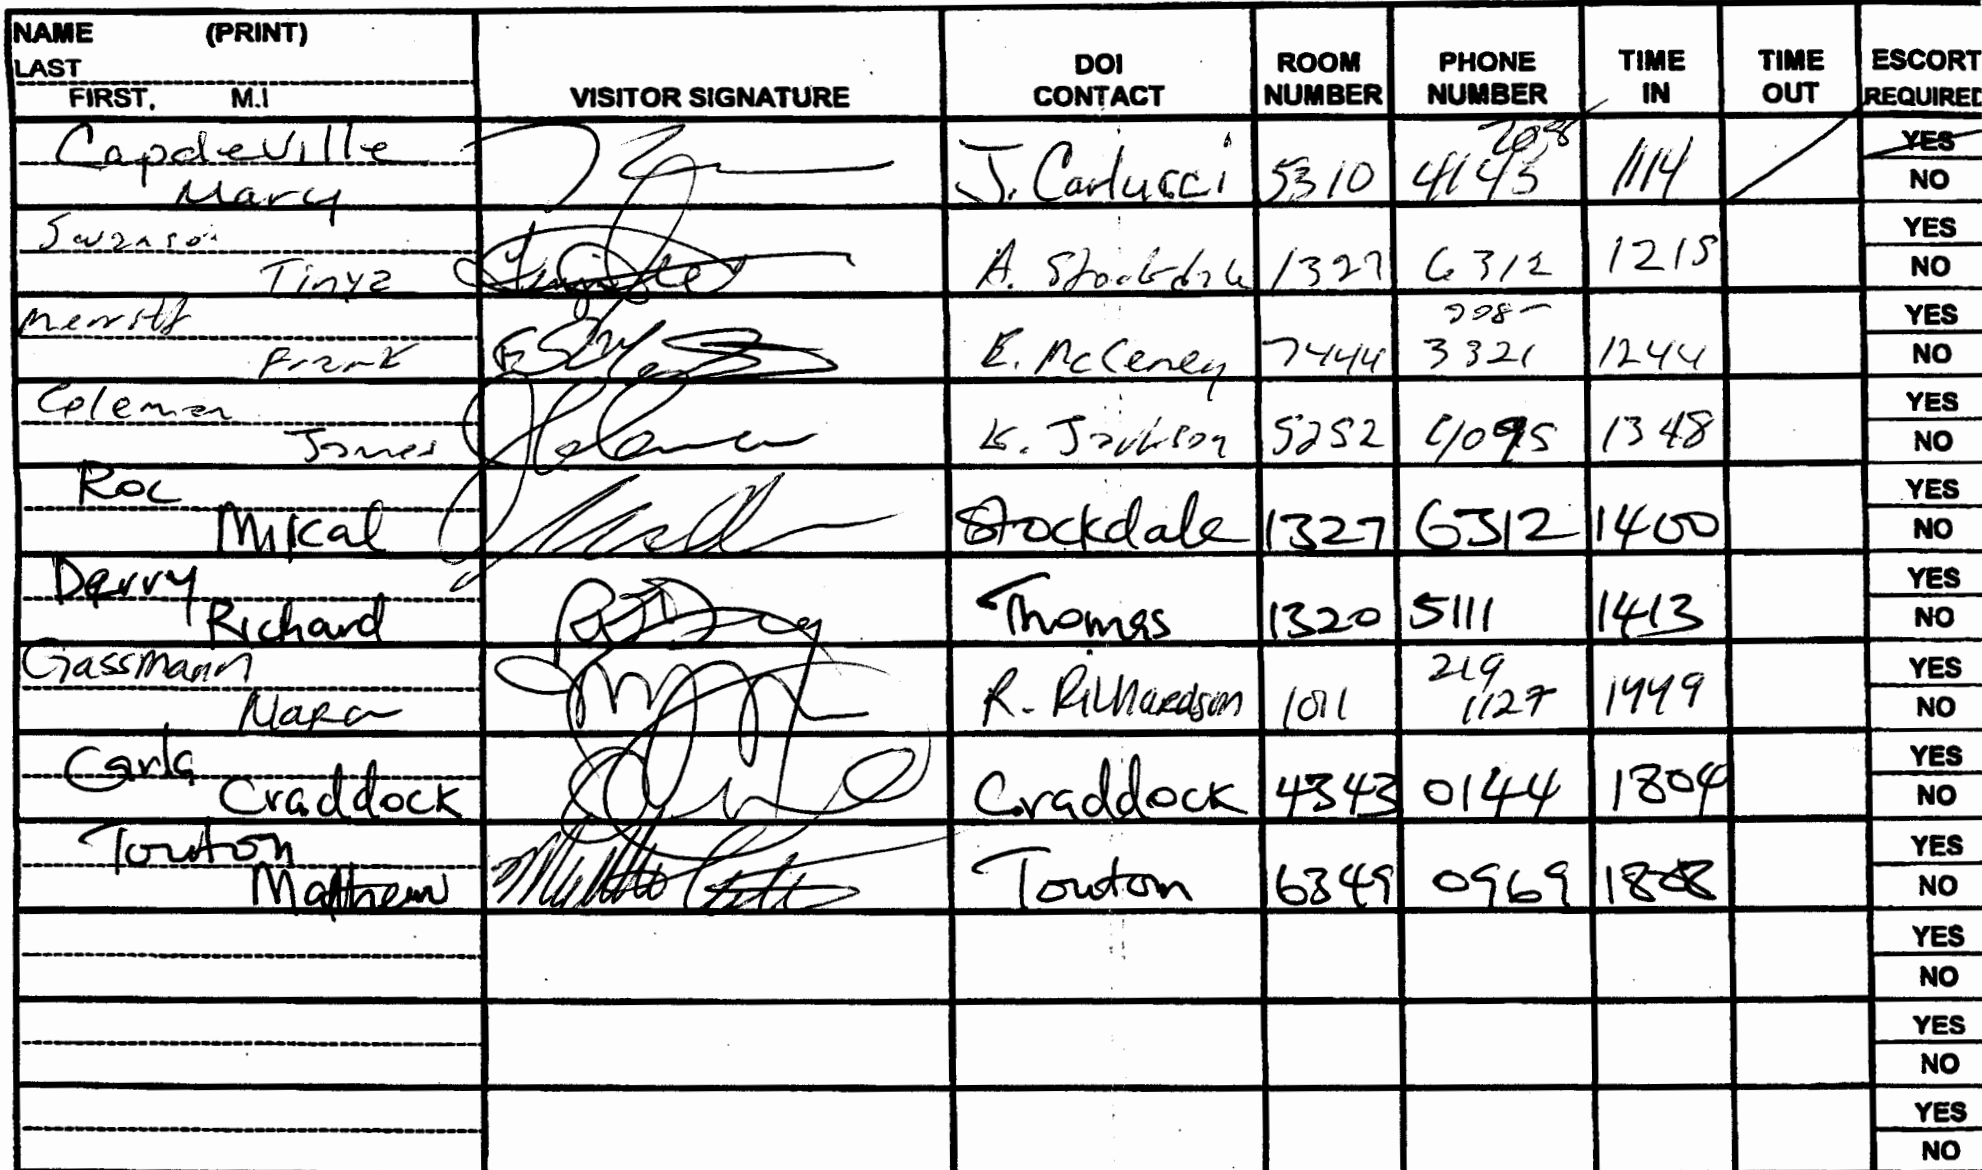 NAME (PRINT)
LAST
FIRST, M.I
VISITOR SIGNATURE
DOI CONTACT
ROOM NUMBER
PHONE NUMBER
TIME IN
TIME OUT
ESCORT REQUIRED
Capdeville
Mary
J. Carlucci 5310 208 4143 1114
YES
NO
Swanson
Tinya
A. Stockdale 1327 6312 1215
YES
NO
Merritt
Frank
E. McCeney 7444 208- 3321 1244
YES
NO
Coleman
James
K. Jackson 5252 4095 1348
YES
NO
Roc
Mikal
Stockdale 1327 6312 1400
YES
NO
Derry
Richard
Thomas 1320 5111 1413
YES
NO
Gassmann
Mara
R. Richardson 1011 219 1127 1449
YES
NO
Carla
Craddock
Craddock 4343 0144 1804
YES
NO
Touton
Matthew
Touton 6349 0969 1808
YES
NO
YES
NO
YES
NO
YES
NO